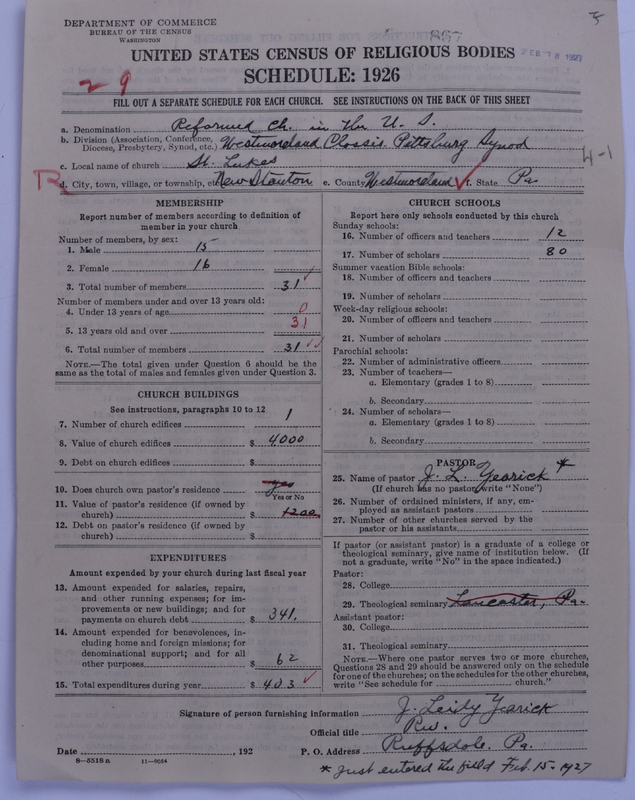 DEPARTMENT OF COMMERCE
BUREAU OF THE CENSUS
WASHINGTON
UNITED STATES CENSUS OF RELIGIOUS BODIES
SCHEDULE: 1926
29
FILL OUT A SEPARATE SCHEDULE FOR EACH CHURCH. SEE INSTRUCTIONS ON THE BACK OF THIS SHEET
a. Denomination Reformed Ch. in the U. S.
b. Division (Association, Conference, Diocese, Presbytery, Synod, etc.) Westmoreland Classis Pittsburg Synod
4-1
c. Local name of church St. Lukes
R d. City, town, village, or township, etc. New Stanton e. County Westmoreland f. State Pa
MEMBERSHIP
Report number of members according to definition of
member in your church
Number of members, by sex:
1. Male 15
2. Female 16
3. Total number of members 31
Number of members under and over 13 years old:
4. Under 13 years of age 0
5. 13 years old and over 31
6. Total number of members 31
NOTE.—The total given under Question 6 should be
same as the total of males and females given under Question 3.
CHURCH BUILDINGS
See instructions, paragraphs 10 to 12
7. Number of church edifices 1
8. Value of church edifices $ 4000
9. Debt on church edifices $
10. Does church own pastor's residence yes
Yes or No
11. Value of pastor's residence (if owned by
church) $ 1200
12. Debt on pastor's residence (if owned by
church) $
EXPENDITURES
Amount expended by your church during last fiscal year
13. Amount expended for salaries, repairs,
and other running expenses; for im-
provements or new buildings; and for
payments on church debt $ 341.
14. Amount expended for benevolences, in-
cluding home and foreign missions; for
denominational support; and for all
other purposes $ 62
15. Total expenditures during year $ 403
CHURCH SCHOOLS
Report here only schools conducted by this church
Sunday schools:
16. Number of officers and teachers 12
17. Number of scholars 80
Summer vacation Bible schools:
18. Number of officers and teachers
19. Number of scholars
Week-day religious schools:
20. Number of officers and teachers
21. Number of scholars
Parochial schools:
22. Number of administrative officers
23. Number of teachers—
a. Elementary (grades 1 to 8)
b. Secondary
24. Number of scholars—
a. Elementary (grades 1 to 8)
b. Secondary
PASTOR
25. Name of pastor J. L. Yearick *
(If church has no pastor, write "None")
26. Number of ordained ministers, if any, em-
ployed as assistant pastors
27. Number of other churches served by the
pastor or his assistants
If pastor (or assistant pastor) is a graduate of a college or
theological seminary, give name of institution below. (If
not a graduate, write "No" in the space indicated.)
Pastor:
28. College
29. Theological seminary Lancaster, Pa.
Assistant pastor:
30. College
31. Theological seminary
NOTE.—Where one pastor serves two or more churches,
Questions 28 and 29 should be answered only on the schedule
for one of the churches; on the schedules for the other churches,
write "See schedule for church."
Signature of person furnishing information J. Leidy Yearick
Official title Rev.
Date , 192 P. O. Address Ruffsdale, Pa.
8—5518 a 11—9054
* Just entered the field Feb. 15-1927